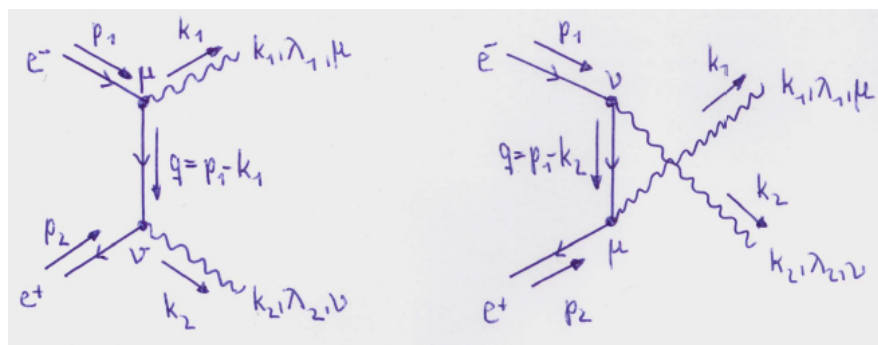 p₁
k₁
e⁻
μ
k₁,λ₁,μ
q=p₁-k₁
p₂
ν
e⁺
k₂
k₂,λ₂,ν
p₁
e⁻
ν
k₁
k₁,λ₁,μ
q=p₁-k₂
k₂
μ
k₂,λ₂,ν
e⁺
p₂